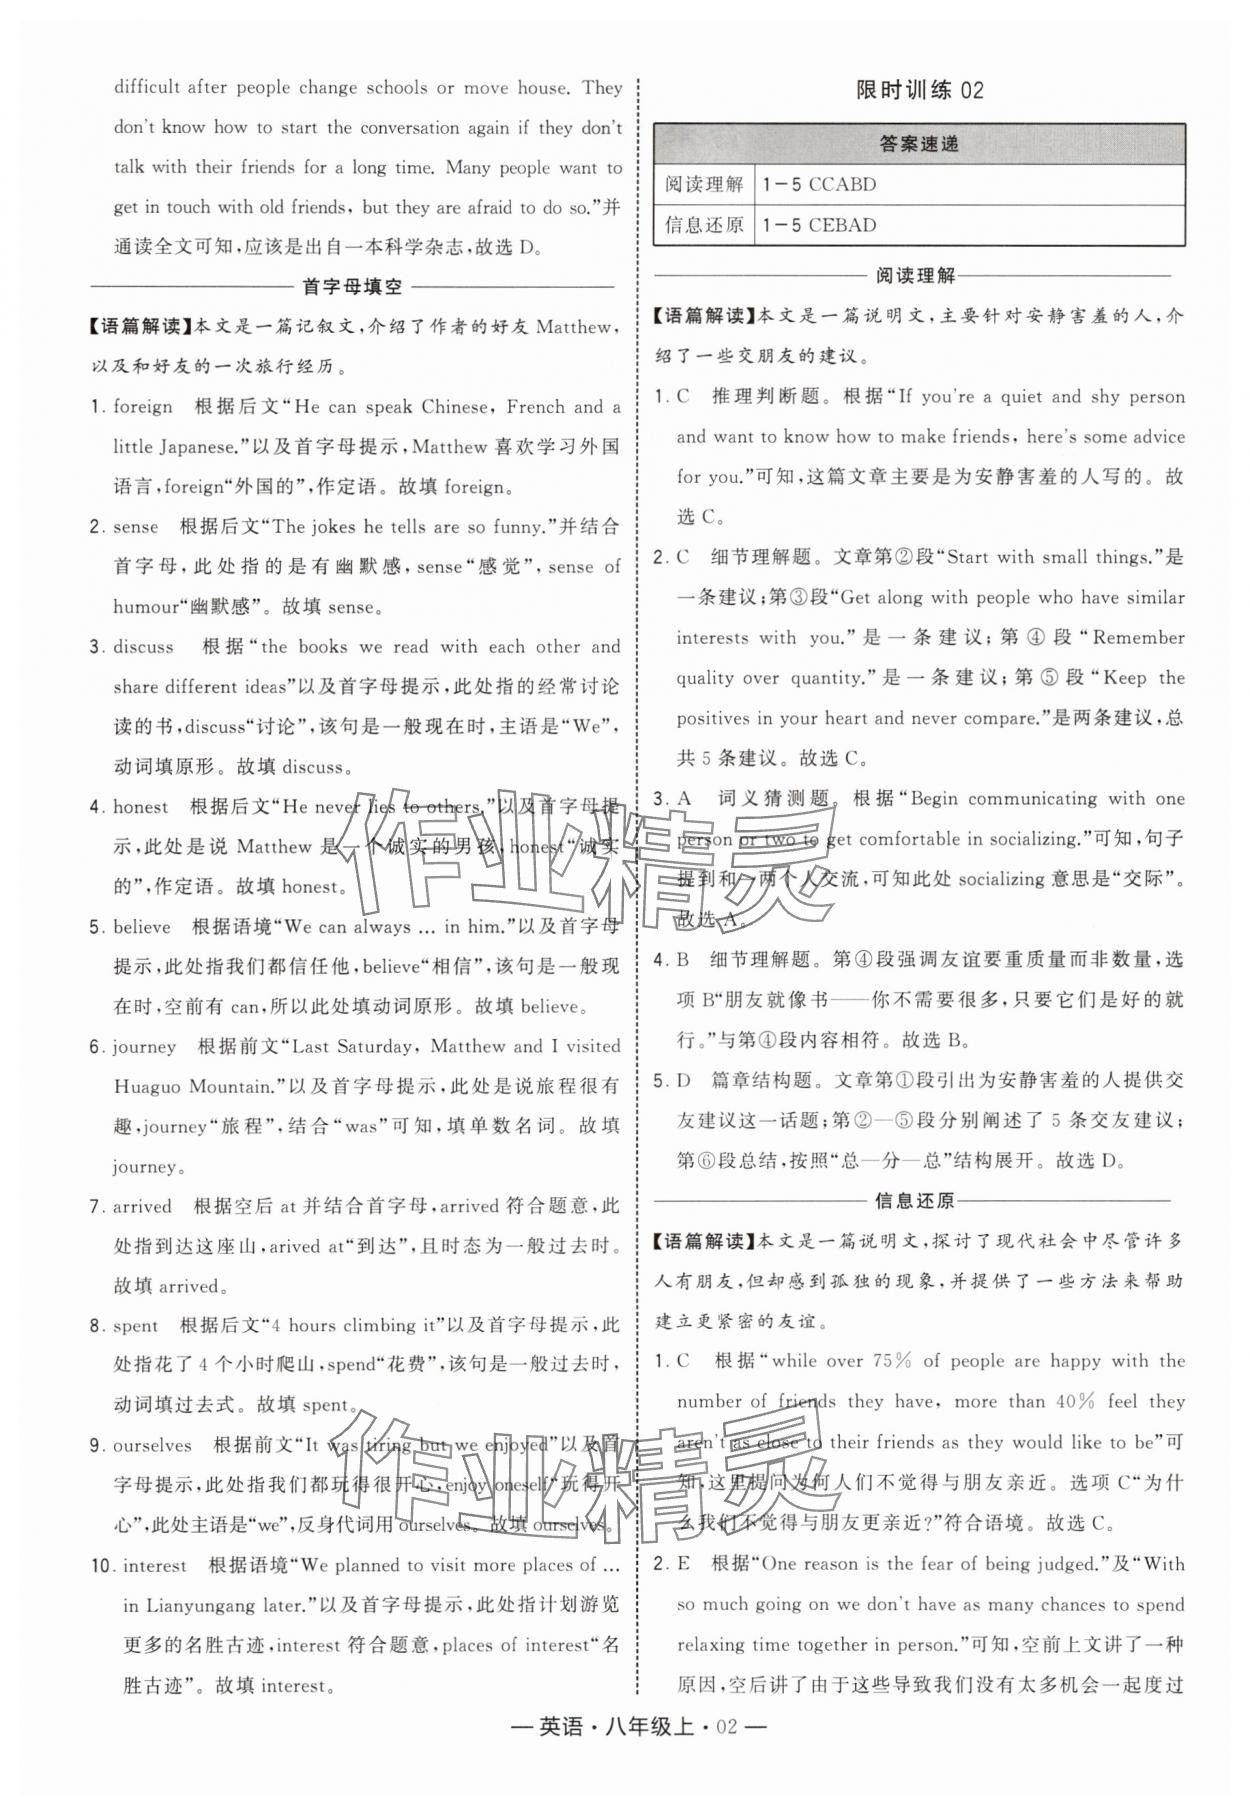 difficult after people change schools or move house. They
don't know how to start the conversation again if they don't
talk with their friends for a long time. Many people want to
get in touch with old friends, but they are afraid to do so.”并
通读全文可知,应该是出自一本科学杂志,故选 D。
首字母填空
【语篇解读】本文是一篇记叙文,介绍了作者的好友 Matthew,
以及和好友的一次旅行经历。
1. foreign 根据后文“He can speak Chinese, French and a
little Japanese.”以及首字母提示,Matthew 喜欢学习外国
语言,foreign“外国的”,作定语。故填 foreign。
2. sense 根据后文“The jokes he tells are so funny.”并结合
首字母,此处指的是有幽默感,sense“感觉”,sense of
humour“幽默感”。故填 sense。
3. discuss 根据“the books we read with each other and
share different ideas”以及首字母提示,此处指的经常讨论
读的书,discuss“讨论”,该句是一般现在时,主语是“We”,
动词填原形。故填 discuss。
4. honest 根据后文“He never lies to others.”以及首字母提
示,此处是说 Matthew 是一个诚实的男孩,honest“诚实
的”,作定语。故填 honest。
5. believe 根据语境“We can always … in him.”以及首字母
提示,此处指我们都信任他,believe“相信”,该句是一般现
在时,空前有 can,所以此处填动词原形。故填 believe。
6. journey 根据前文“Last Saturday, Matthew and I visited
Huaguo Mountain.”以及首字母提示,此处是说旅程很有
趣,journey“旅程”,结合“was”可知,填单数名词。故填
journey。
7. arrived 根据空后 at 并结合首字母,arrived 符合题意,此
处指到达这座山,arived at“到达”,且时态为一般过去时。
故填 arrived。
8. spent 根据后文“4 hours climbing it”以及首字母提示,此
处指花了 4 个小时爬山,spend“花费”,该句是一般过去时,
动词填过去式。故填 spent。
9. ourselves 根据前文“It was tiring but we enjoyed”以及首
字母提示,此处指我们都玩得很开心,enjoy oneself“玩得开
心”,此处主语是“we”,反身代词用 ourselves。故填 ourselves。
10. interest 根据语境“We planned to visit more places of …
in Lianyungang later.”以及首字母提示,此处指计划游览
更多的名胜古迹,interest 符合题意,places of interest“名
胜古迹”。故填 interest。
限时训练 02
答案速递
阅读理解 1-5 CCABD
信息还原 1-5 CEBAD
阅读理解
【语篇解读】本文是一篇说明文,主要针对安静害羞的人,介
绍了一些交朋友的建议。
1. C 推理判断题。根据“If you're a quiet and shy person
and want to know how to make friends, here's some advice
for you.”可知,这篇文章主要是为安静害羞的人写的。故
选 C。
2. C 细节理解题。文章第②段“Start with small things.”是
一条建议;第③段“Get along with people who have similar
interests with you.”是一条建议;第④段“Remember
quality over quantity.”是一条建议;第⑤段“Keep the
positives in your heart and never compare.”是两条建议,总
共 5 条建议。故选 C。
3. A 词义猜测题。根据“Begin communicating with one
person or two to get comfortable in socializing.”可知,句子
提到和一两个人交流,可知此处 socializing 意思是“交际”。
故选 A。
4. B 细节理解题。第④段强调友谊要重质量而非数量,选
项 B“朋友就像书——你不需要很多,只要它们是好的就
行。”与第④段内容相符。故选 B。
5. D 篇章结构题。文章第①段引出为安静害羞的人提供交
友建议这一话题;第②—⑤段分别阐述了 5 条交友建议;
第⑥段总结,按照“总—分—总”结构展开。故选 D。
信息还原
【语篇解读】本文是一篇说明文,探讨了现代社会中尽管许多
人有朋友,但却感到孤独的现象,并提供了一些方法来帮助
建立更紧密的友谊。
1. C 根据“while over 75% of people are happy with the
number of friends they have, more than 40% feel they
aren't as close to their friends as they would like to be”可
知,这里提问为何人们不觉得与朋友亲近。选项 C“为什
么我们不觉得与朋友更亲近?”符合语境。故选 C。
2. E 根据“One reason is the fear of being judged.”及“With
so much going on we don't have as many chances to spend
relaxing time together in person.”可知,空前上文讲了一种
原因,空后讲了由于这些导致我们没有太多机会一起度过
— 英语·八年级上·02 —
作业精灵
作业精灵